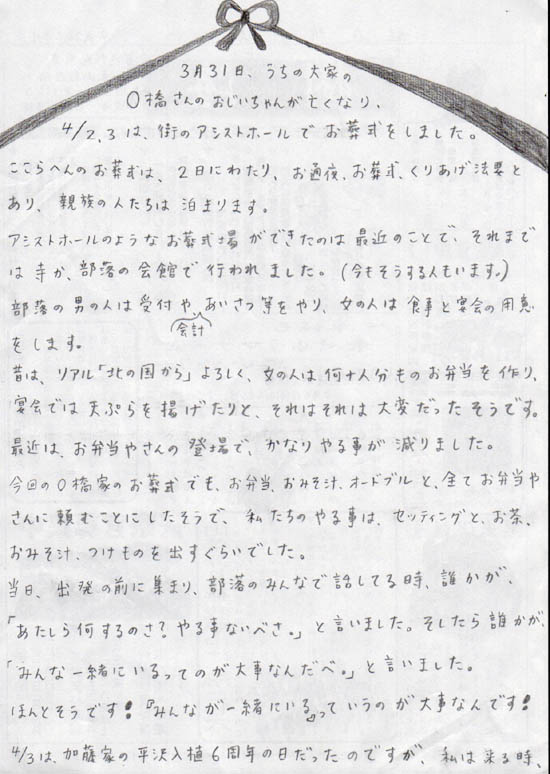 3月31日、うちの大家の
〇橋さんのおじいちゃんが亡くなり、
4/2,3は、街のアシストホールでお葬式をしました。
ここらへんのお葬式は、2日にわたり、お通夜、お葬式、くりあげ法要と
あり、親族の人たちは泊まります。
アシストホールのようなお葬式場ができたのは最近のことで、それまで
は寺か、部落の会館で行われました。(今もそうする人もいます。)
部落の男の人は受付や、あいさつ等をやり、女の人は食事と宴会の用意
会計
をします。
昔は、リアル「北の国から」よろしく、女の人は何十人分ものお弁当を作り、
宴会では天ぷらを揚げたりと、それはそれは大変だったそうです。
最近は、お弁当やさんの登場で、かなりやる事が減りました。
今回の〇橋家のお葬式でも、お弁当、おみそ汁、オードブルと、全てお弁当や
さんに頼むことにしたそうで、私たちのやる事は、セッティングと、お茶、
おみそ汁、つけものを出すぐらいでした。
当日、出発の前に集まり、部落のみんなで話してる時、誰かが、
「あたしら何するのさ?やる事ないべさ。」と言いました。そしたら誰かが、
「みんな一緒にいるってのが大事なんだべ。」と言いました。
ほんとそうです!『みんなが一緒にいる』っていうのが大事なんです!
4/3は、加藤家の平沢入植6周年の日だったのですが、私は来る時、